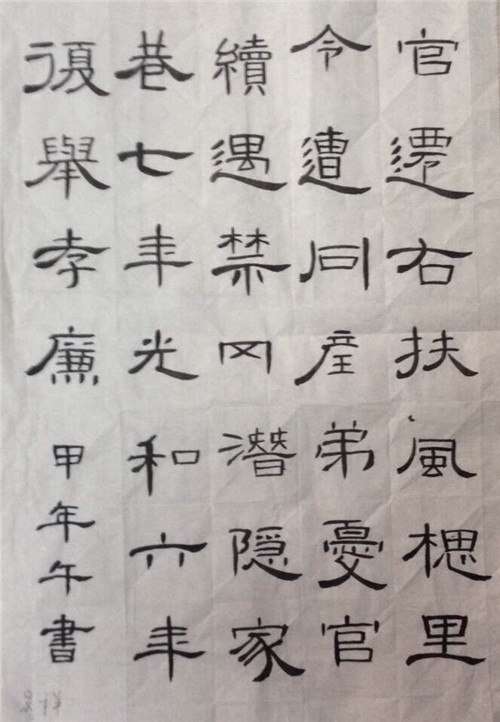 官遷右扶風槐里
令遭同産弟憂官
續遇禁网潛隐家
巷七年光和六年
復舉孝廉 甲年午書